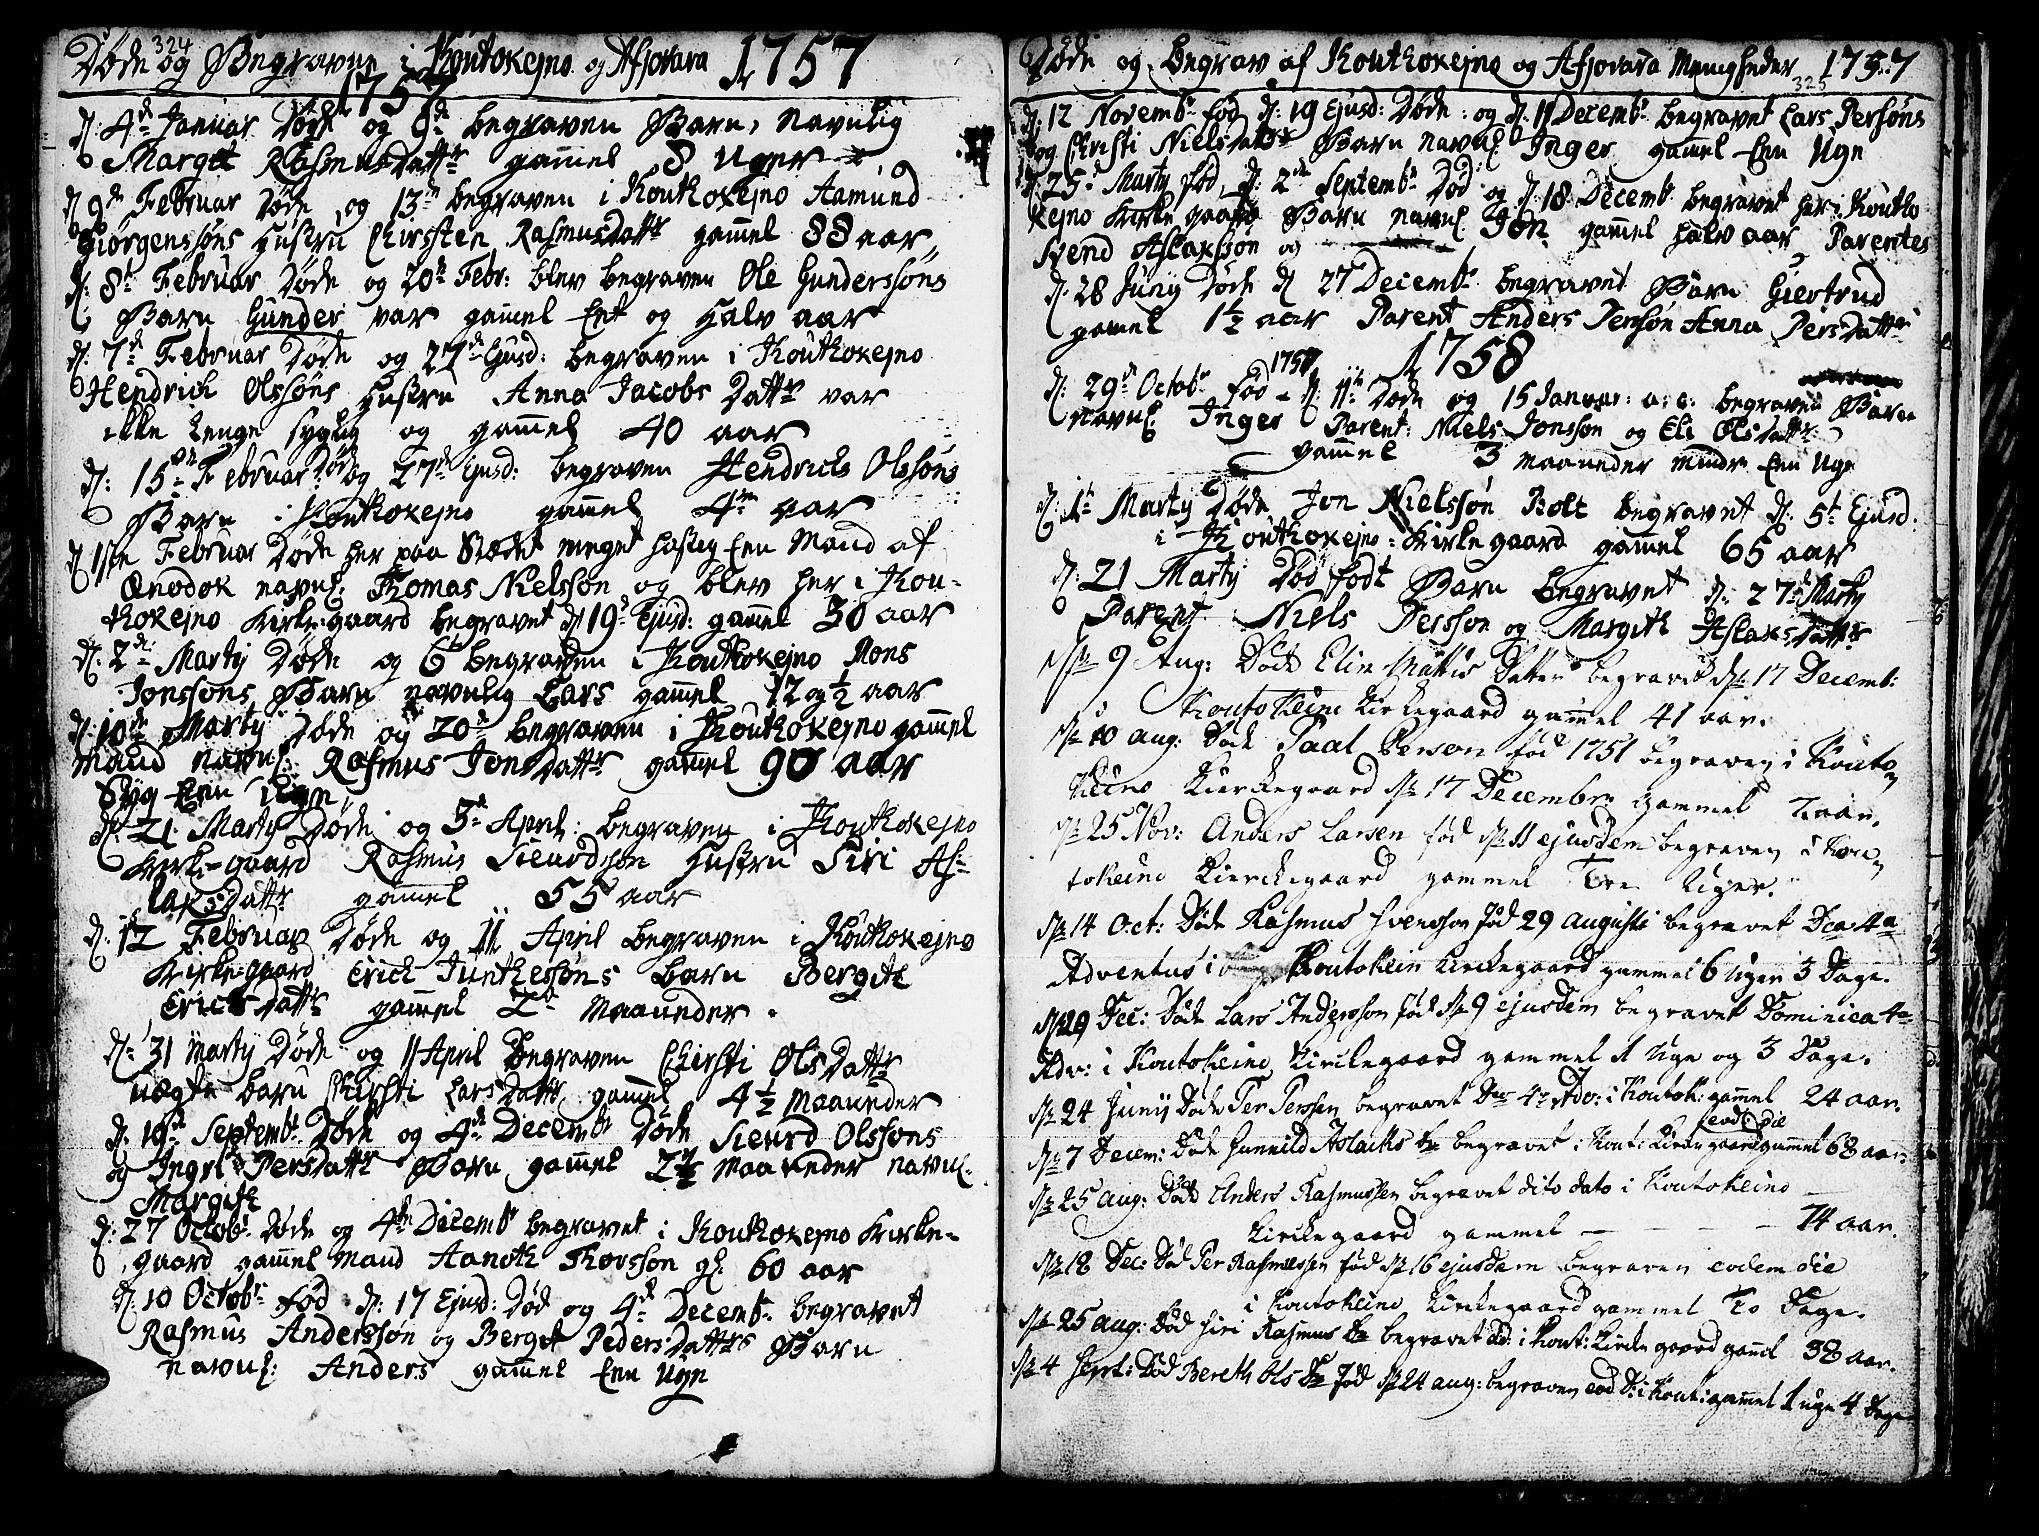 324
Døde og Begravne i Koutokejno og Afjovara 1757
1757
d: 4de Januar Døde og 9de begraven Barn, navnlig
Margit Rasmusdattr gam̄el 8 Uger
d 9de Februar Døde og 13de begraven i Koutokejno Aamund
Giörgenssöns Hustru Chirsten Rasmusdattr gam̄el 88 aar
d: 8de Februar Døde og 20de Febr: blev begraven Ole Gunderssöns
Barn Gunder var gam̄el Eet og Halv aar
d: 7de Februar Døde og 27de Ejusd: begraven i Koutokejno
Hendrich Olssöns Hustru Anna Jacobs Dattr var
ikke lenge syglig og gam̄el 40 aar
d: 15de Februar Døde og 27de Ejusd: begraven Hendrich Olssöns
Barn i Koutokejno gam̄el 4re aar
d 1ste Februar Døde her paa Stædet meget hastig Een Mand af
navnl: Thomas Nielssön og blev her i Kou-
tokejno Kirke-gaard begravet d 19de Ejusd: gam̄el 30 aar
d: 2de Martij Døde og 6te begraven i Koutokejno Mons
Jonssöns Barn navnlig Lars gam̄el 12 og ½ aar
d: 10de Martij Døde og 20de begraven i Koutokejno gam̄el
Mand navnl: Rasmus Jonsdattr gam̄el 90 aar
Syg Een Ugn
d: 21 Martij Døde og 3de April: begraven i Koutokejno
Kirke-gaard Rasmus Sieurdssön Hustru Siri As-
laksdattr gam̄el 55 aar
d: 12 Februar Døde og 11 April begraven i Koutokejno
Kirke-gaard Erich Junthessöns barn Bergite
Erichsdattr gam̄el 2de Maaneder.
d: 31 Martij Døde og 11 April begraven Chirsti Olsdattr
uægte barn Chirsti Larsdattr gam̄el 4½ Maaneder
d: 19de Septembr: Døde og 4de Decembr Døde Sieurd Olssöns
og Ingri Persdattr Barn gam̄el 2½ Maaneder navnl:
Margith
d: 27 Octobr: Døde og 4de Decembr begravet i Koutokejno Kirke-
gaard gam̄el Mand Aanoth Thorssön gl: 60 aar
d: 10 Octobr fød d: 17 Ejusd: Død og 4de Decembr begravet
Rasmus Anderssøn og Berget Pedersdattrs Barn
navnl: Anders gam̄el Een Ugn
Døde og begrav af Koutokejno og Afjovara Menigheder 1757
325
d: 12 Novembr fød d: 19 Ejusd: Døde: og d: 11 Decembr begravet Lars Persöns
og Chirsti Nielsdattr Barn navnl: Inger gam̄el Een Ugn
d: 25de Martij fød, d: 2de Septembr Død og d: 18 Decemb: begravet her i Kouto
kejno Kirke gaard Barn navnl: Jon gam̄el halv aar Parentes
Svend Aslakssön og
d: 28 Junij Døde d 27 Decembr begravet Barn Giertrud
gam̄el 1½ aar Parent Anders Perssön Anna Persdattr
1758
d: 29de Octobr fød 1757 d: 11te Døde og 15 Januar: a: c: begraven Barn
navnl: Inger Parent: Niels Jonssön og Eli Olsdattr
gam̄el 3 Maaneder mindr Een Ugn
d: 1te Martij Døde Jon Nielssön Holt begravet d: 5te Ejusd:
i Koutokejno-Kirke gaard gam̄el 65 aar
d: 21 Martij Død født Barn begravet d: 27de Martij
Parent: Niels Perssön og Margith Aslaksdattr
d. 9 Aug: Døde Elin Mattis Datter begravet d. 17 Decemb:
i Koutokeino Kirkegaard gam̄el 41 aar.
d. 10 aug: Døde Paal Person fød 1751 begraven i Kouto-
keino Kierckegaard d. 17 Decembr gammel 7 aar.
d. 25 Nov: Anders Larsen fød d. 11 ejusdem begraven i Kou-
tokeino Kierckegaard gammel Tre Uger.
d. 14 Oct: Døde Rasmus Svensson fød 29 augusti begravet Dca 4ta
Adventus i Koutokein Kirckegaard gammel 6 Uger 3 Dage.
d. 19 Dec: Døde Lars Andersson fød d. 9 ejusdem begravet Dominica 4ta
Adv: i Koutokeino Kirckegaard gammel 1 Uge og 3 Dage.
d. 24 Junij Døde Per Perssen begravet Dca 4ta Adv: i Koutok: gam̄el 24 aar.
d. 7 Decem: Døde Gunnild Aslachs Dr begravet eod: die i Kout: Kirckegaard gam̄el 68 aar.
d. 25 aug: Døde Anders Rasmussen begravet dito dato i Koutokeino
Kirckegaard gammel — — — 74 aar.
d. 18 Dec: Død Per Rasmussen fød d. 16 ejusdem begraven eodem die
i Koutokeino Kirckegaard gammel To Dage.
d. 25 aug: Død Siri Rasmus Dr begravet dd: i Kout: Kircke gaard gam̄el 38 aar.
d. 4 Sept: Død Bereth Ols Dr fød d. 24 aug: begraven eod D: i Kout: gam̄el 1 uge 4 Dage